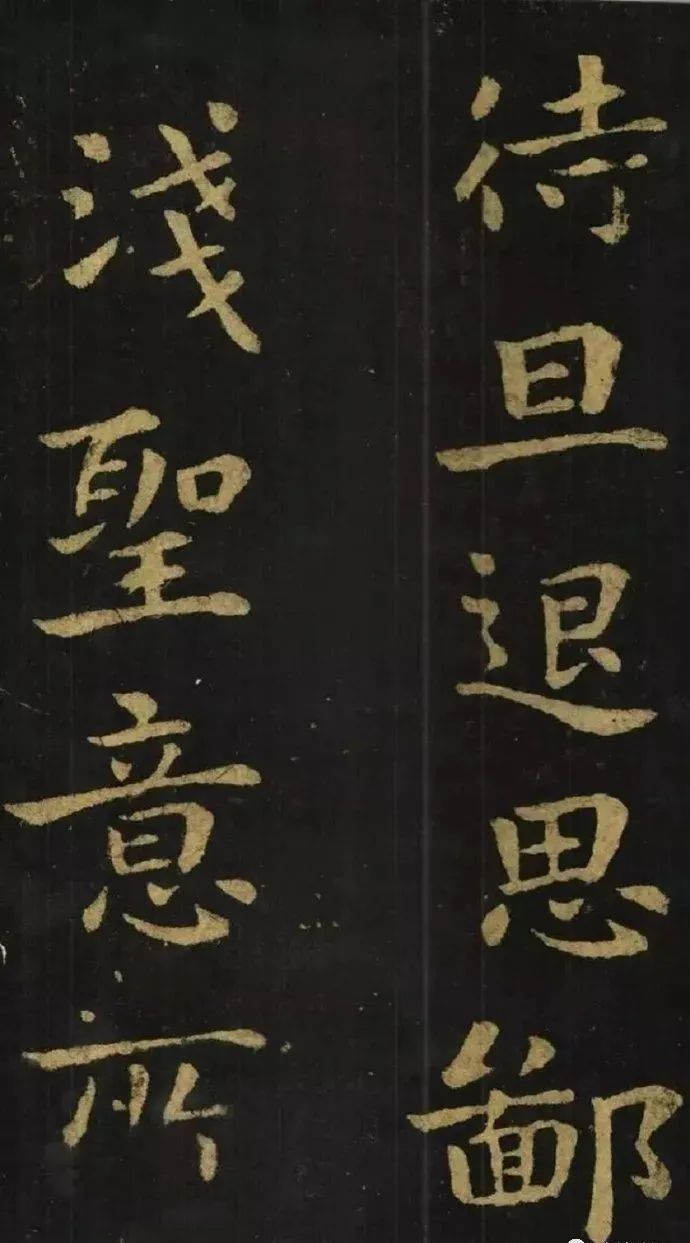 待旦退思鄙
淺聖意所